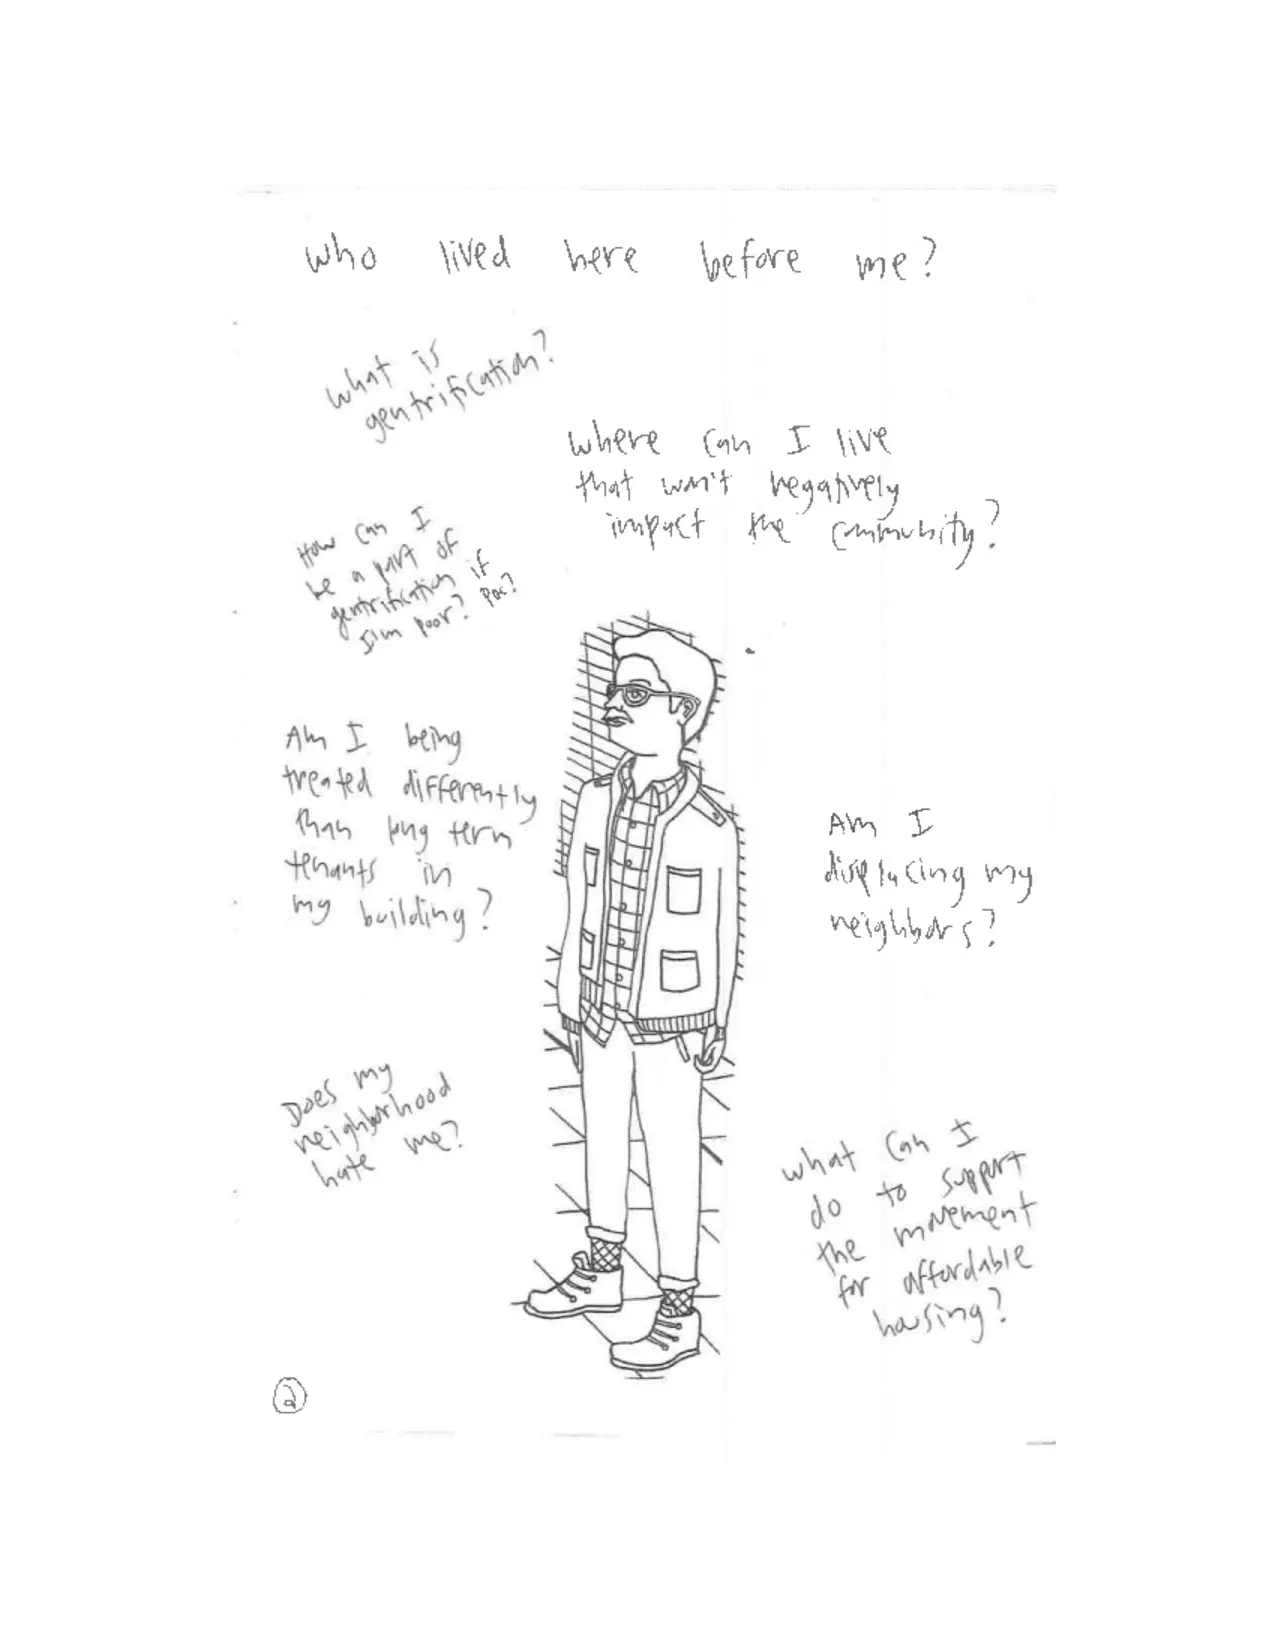 who lived here before me?
what is
gentrification?
where can I live
that won't negatively
impact the community?
How can I
be a part of
gentrification if
I'm poor? poc?
Am I being
treated differently
than long term
tenants in
my building?
Am I
displacing my
neighbors?
Does my
neighborhood
hate me?
what can I
do to support
the movement
for affordable
housing?
2